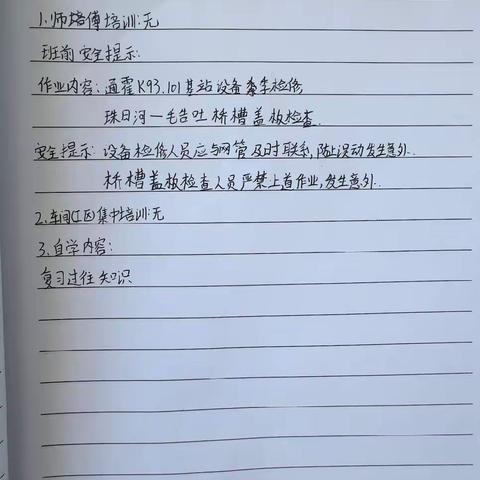 1.师傅培训:无
班前安全提示:
作业内容:通霍K93.101基站设备季检修
珠日河一毛告吐桥槽盖板检查.
安全提示:设备检修人员应与网管及时联系,防止误动发生意外.
桥槽盖板检查人员严禁上道作业,发生意外.
2.车间工区集中培训:无
3.自学内容:
复习过往知识